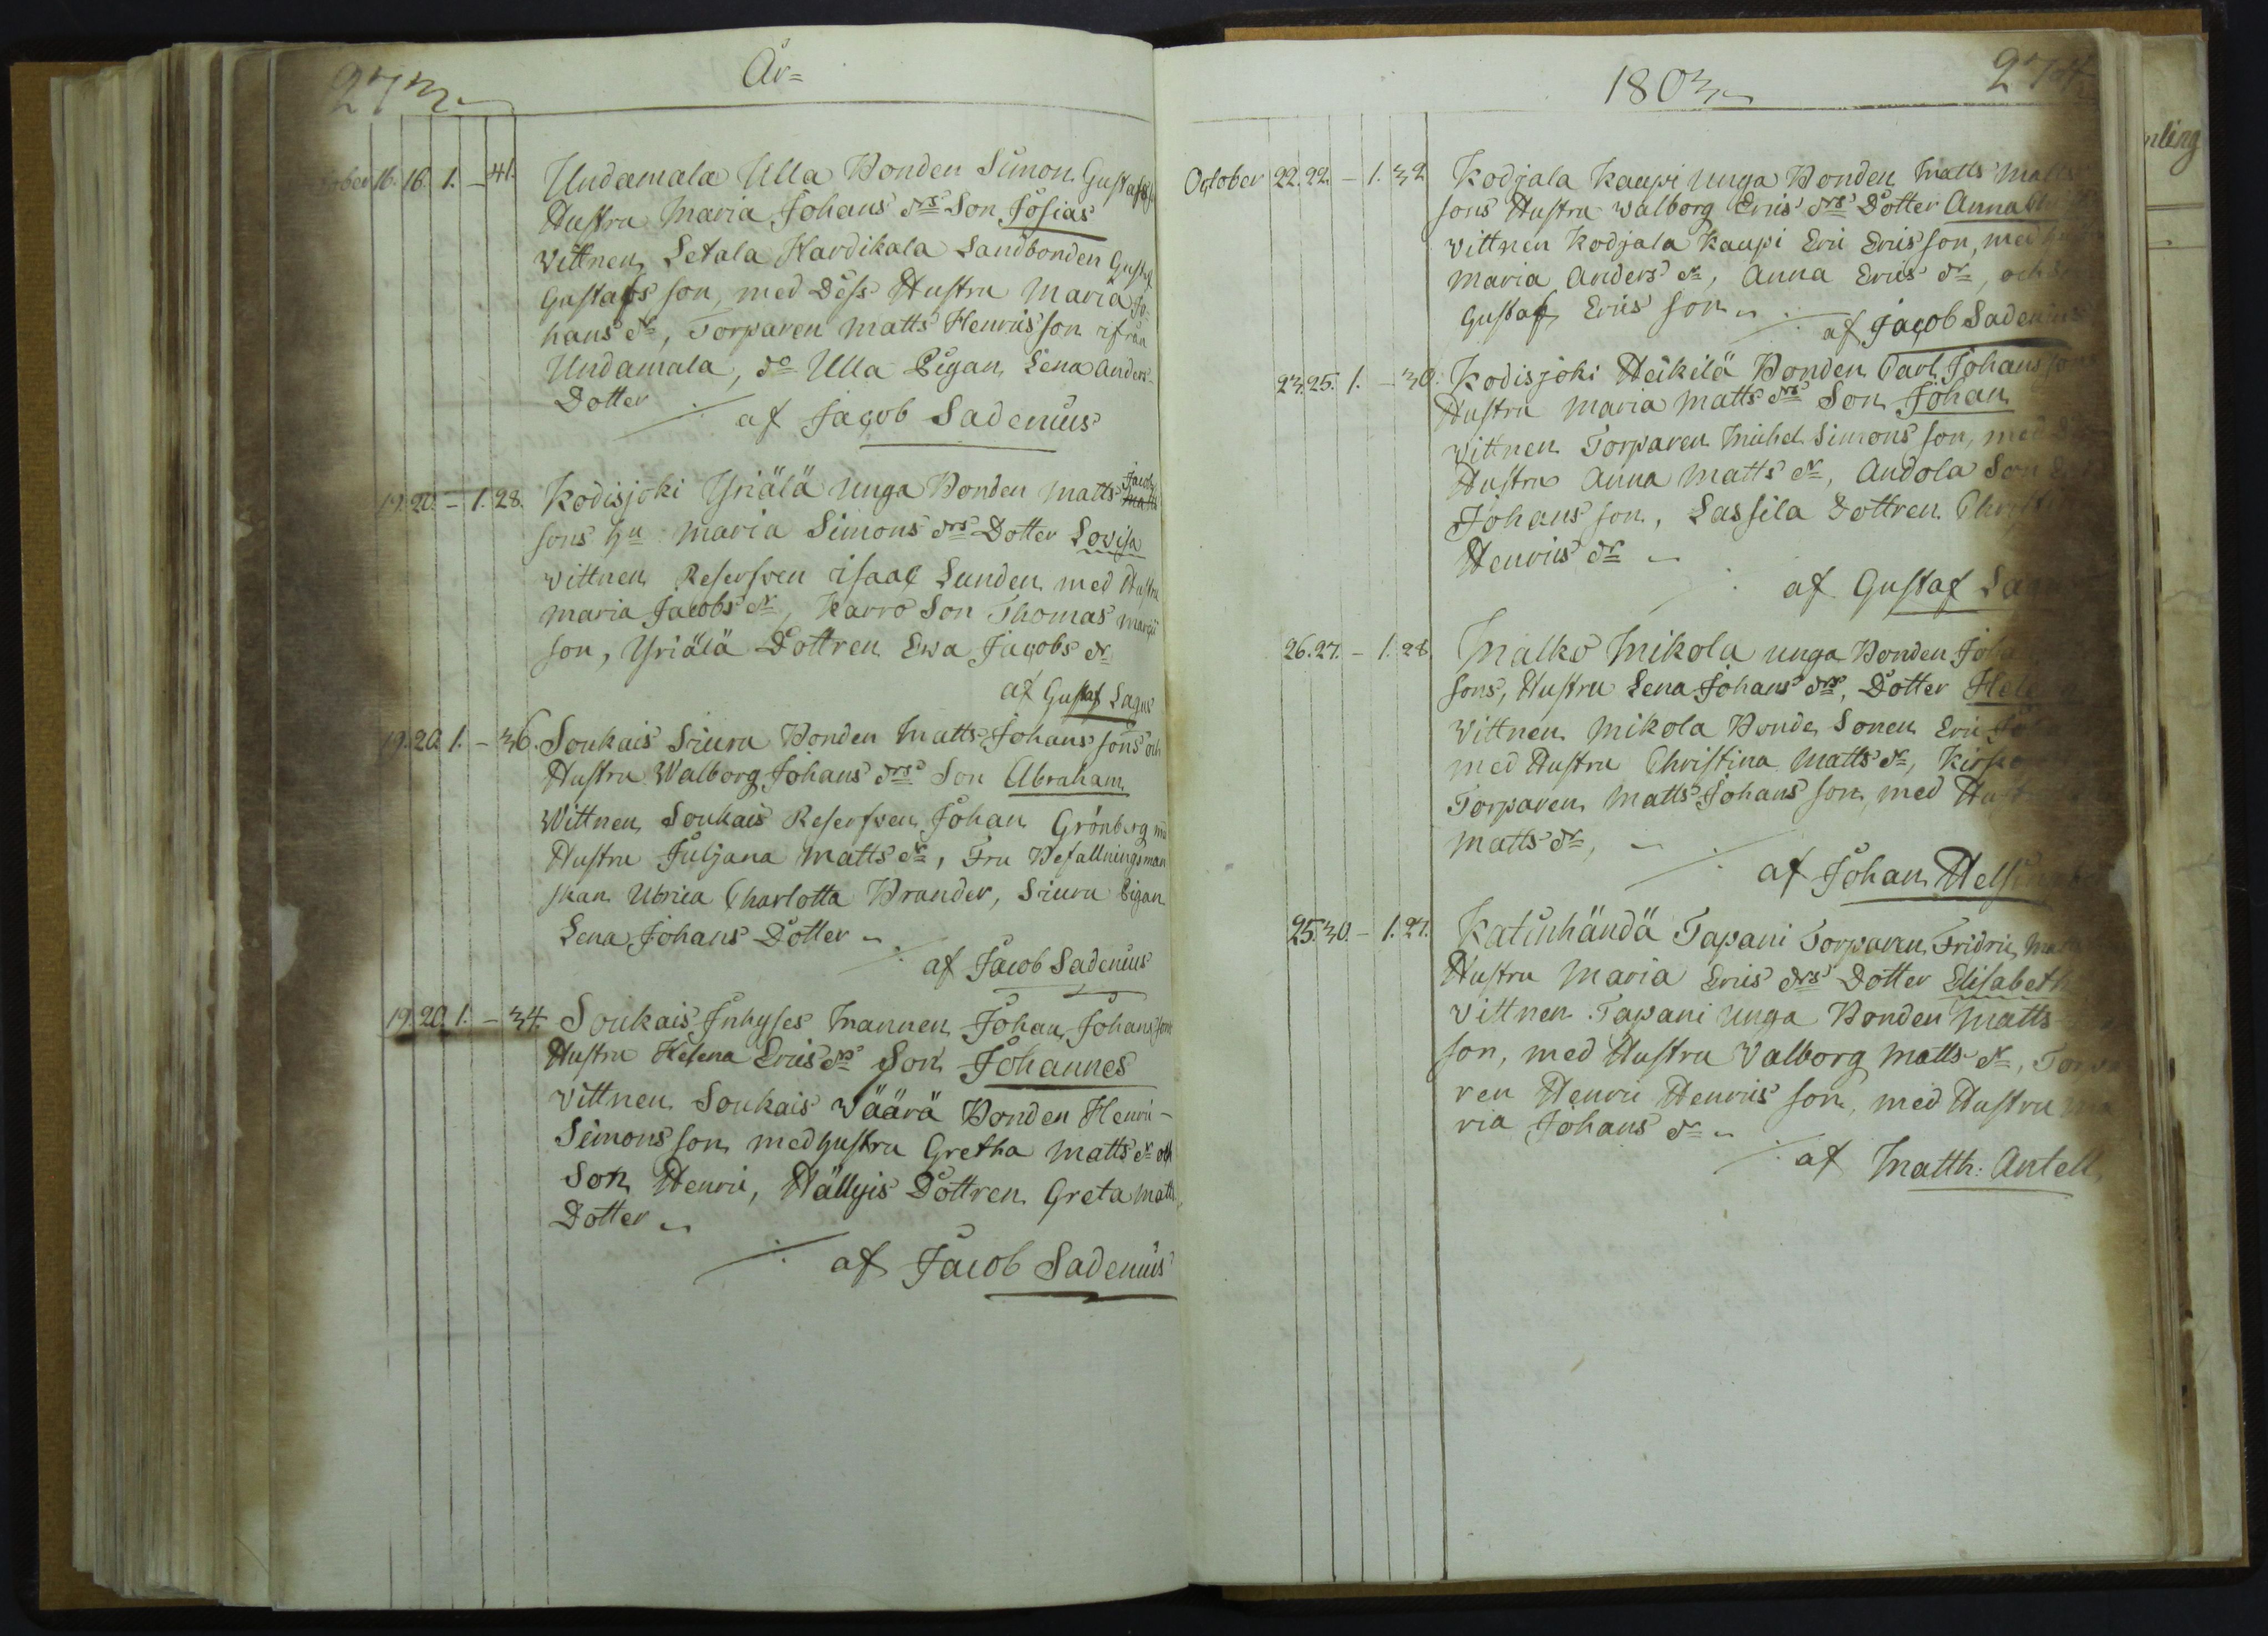 273
År=
16. 16. 1. - 41. Undamala Ulla Bonden Simon Gustafs
Hustru Maria Johans drs Son Josias
Vittnen Letala Hardikala Landbonden Gustaf
Gustafs son, med Dess Hustru Maria Jo-
hans dr, Torparen Matts Henrics son ifrån
Undamala, do Ulla Pigan Lena Anders
Dotter ./. af Jacob Sadenius
19. 20. - 1. 28. Kodisjoki Yriälä Unga Bonden Matts Jacobs
sons hu Maria Simons drs Dotter Lovisa
vittnen Reserfven isaac Lunden med Hustru
Maria Jacobs dr, Karro Son Thomas
son, Yriälä Dottren Ewa Jacobs dr
af Gustaf Lagus
19. 20. 1. - 36. Soukais Siuru Bonden Matts Johans sons och
Hustru Walborg Johans drs Son Abraham
Wittnen Soukais Reserfven Johan Grönberg med
Hustru Juljana Matts dr, Fru Befallningsman
skan Ulrica Charlotta Brander, Siuru Pigan
Lena Johans Dotter
./. af Jacob Sadenius
19. 20. 1. - 34. Soukais Inhyses Mannen Johan Johans sons
Hustru Helena Erics drs Son Johannes
Vittnen Soukais Väärä Bonden Henric
Simons son med hustru Gretha Matts dr och
Son Henric, Hällyis Dottren Greta Matts
Dotter
./. af Jacob Sadenius
1803
274
October 22. 22. - 1. 32. Kodjala Kaupi Unga Bonden Matts Matts
sons Hustru Walborg Erics drs Dotter Anna
vittnen Kodjala Kaupi Eric Ericsson, med
Maria Anders dr, Anna Erics dr, och
Gustaf Erics son
./. af Jacob Sadenius
23. 25. 1. - 30. Kodisjoki Heikilä Bonden Carl Johans sons
Hustru Maria Matts drs Son Johan
Vittnen Torparen Michel Simons son, med
Hustru Anna Matts dr, Andola Son
Johans son, Lassila Dottren
Henrics dr
./. af Gustaf
26. 27. - 1. 28. Malko Mikola unga Bonden
sons, Hustru Lena Johans drs, Dotter
Vittnen Mikola Bonde Sonen Eric
med Hustru Christina Matts dr,
Torparen Matts Johans son, med
Matts dr,
./. af Johan
25. 30. - 1. 27. Katinhändä Tapani Torparen Fridric
Hustru Maria Erics drs Dotter Elisabeth
Vittnen Tapani Unga Bonden Matts
son, med Hustru Valborg Matts dr, Torpa
ren Henric Henrics son, med Hustru Ma
ria Johans dr
./. af Matth: Antell
nling